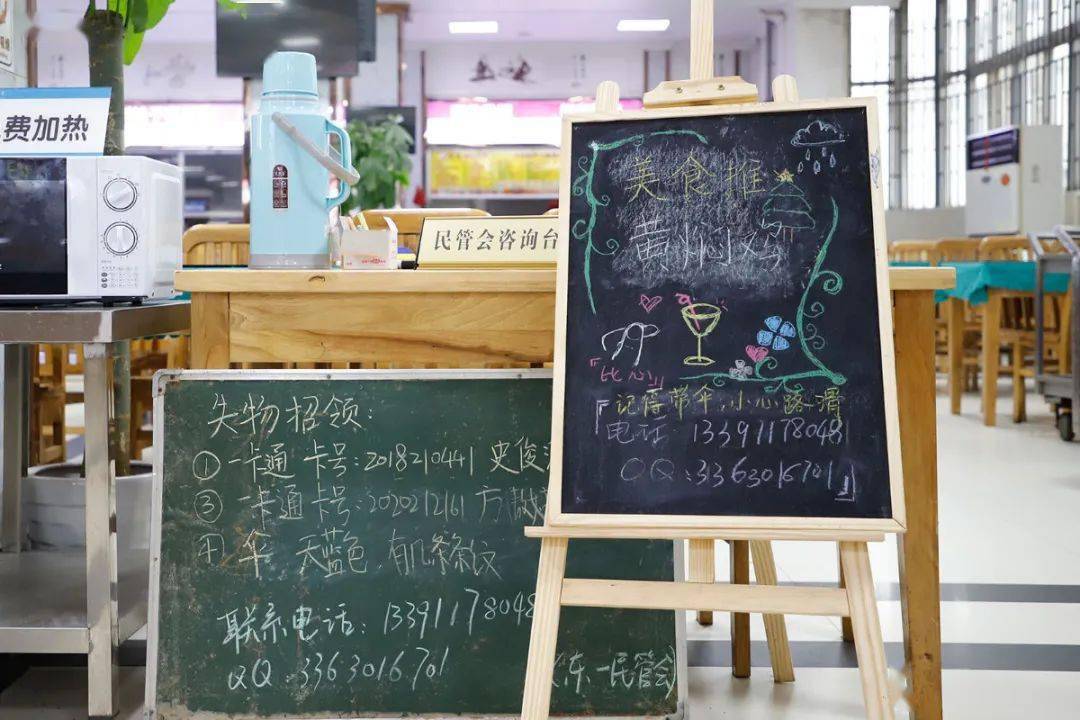 费加热
民管会咨询台
美食推
黄焖鸡
"比心"
「记得带伞,小心路滑
电话 13391178048
QQ:3363016701」
失物招领:
① 一卡通 卡号:2018210441 史俊
③ 一卡通卡号:2020212161 方
④ 伞 天蓝色,有几条条纹
联系电话:13391178048
QQ:3363016701
东一民管会